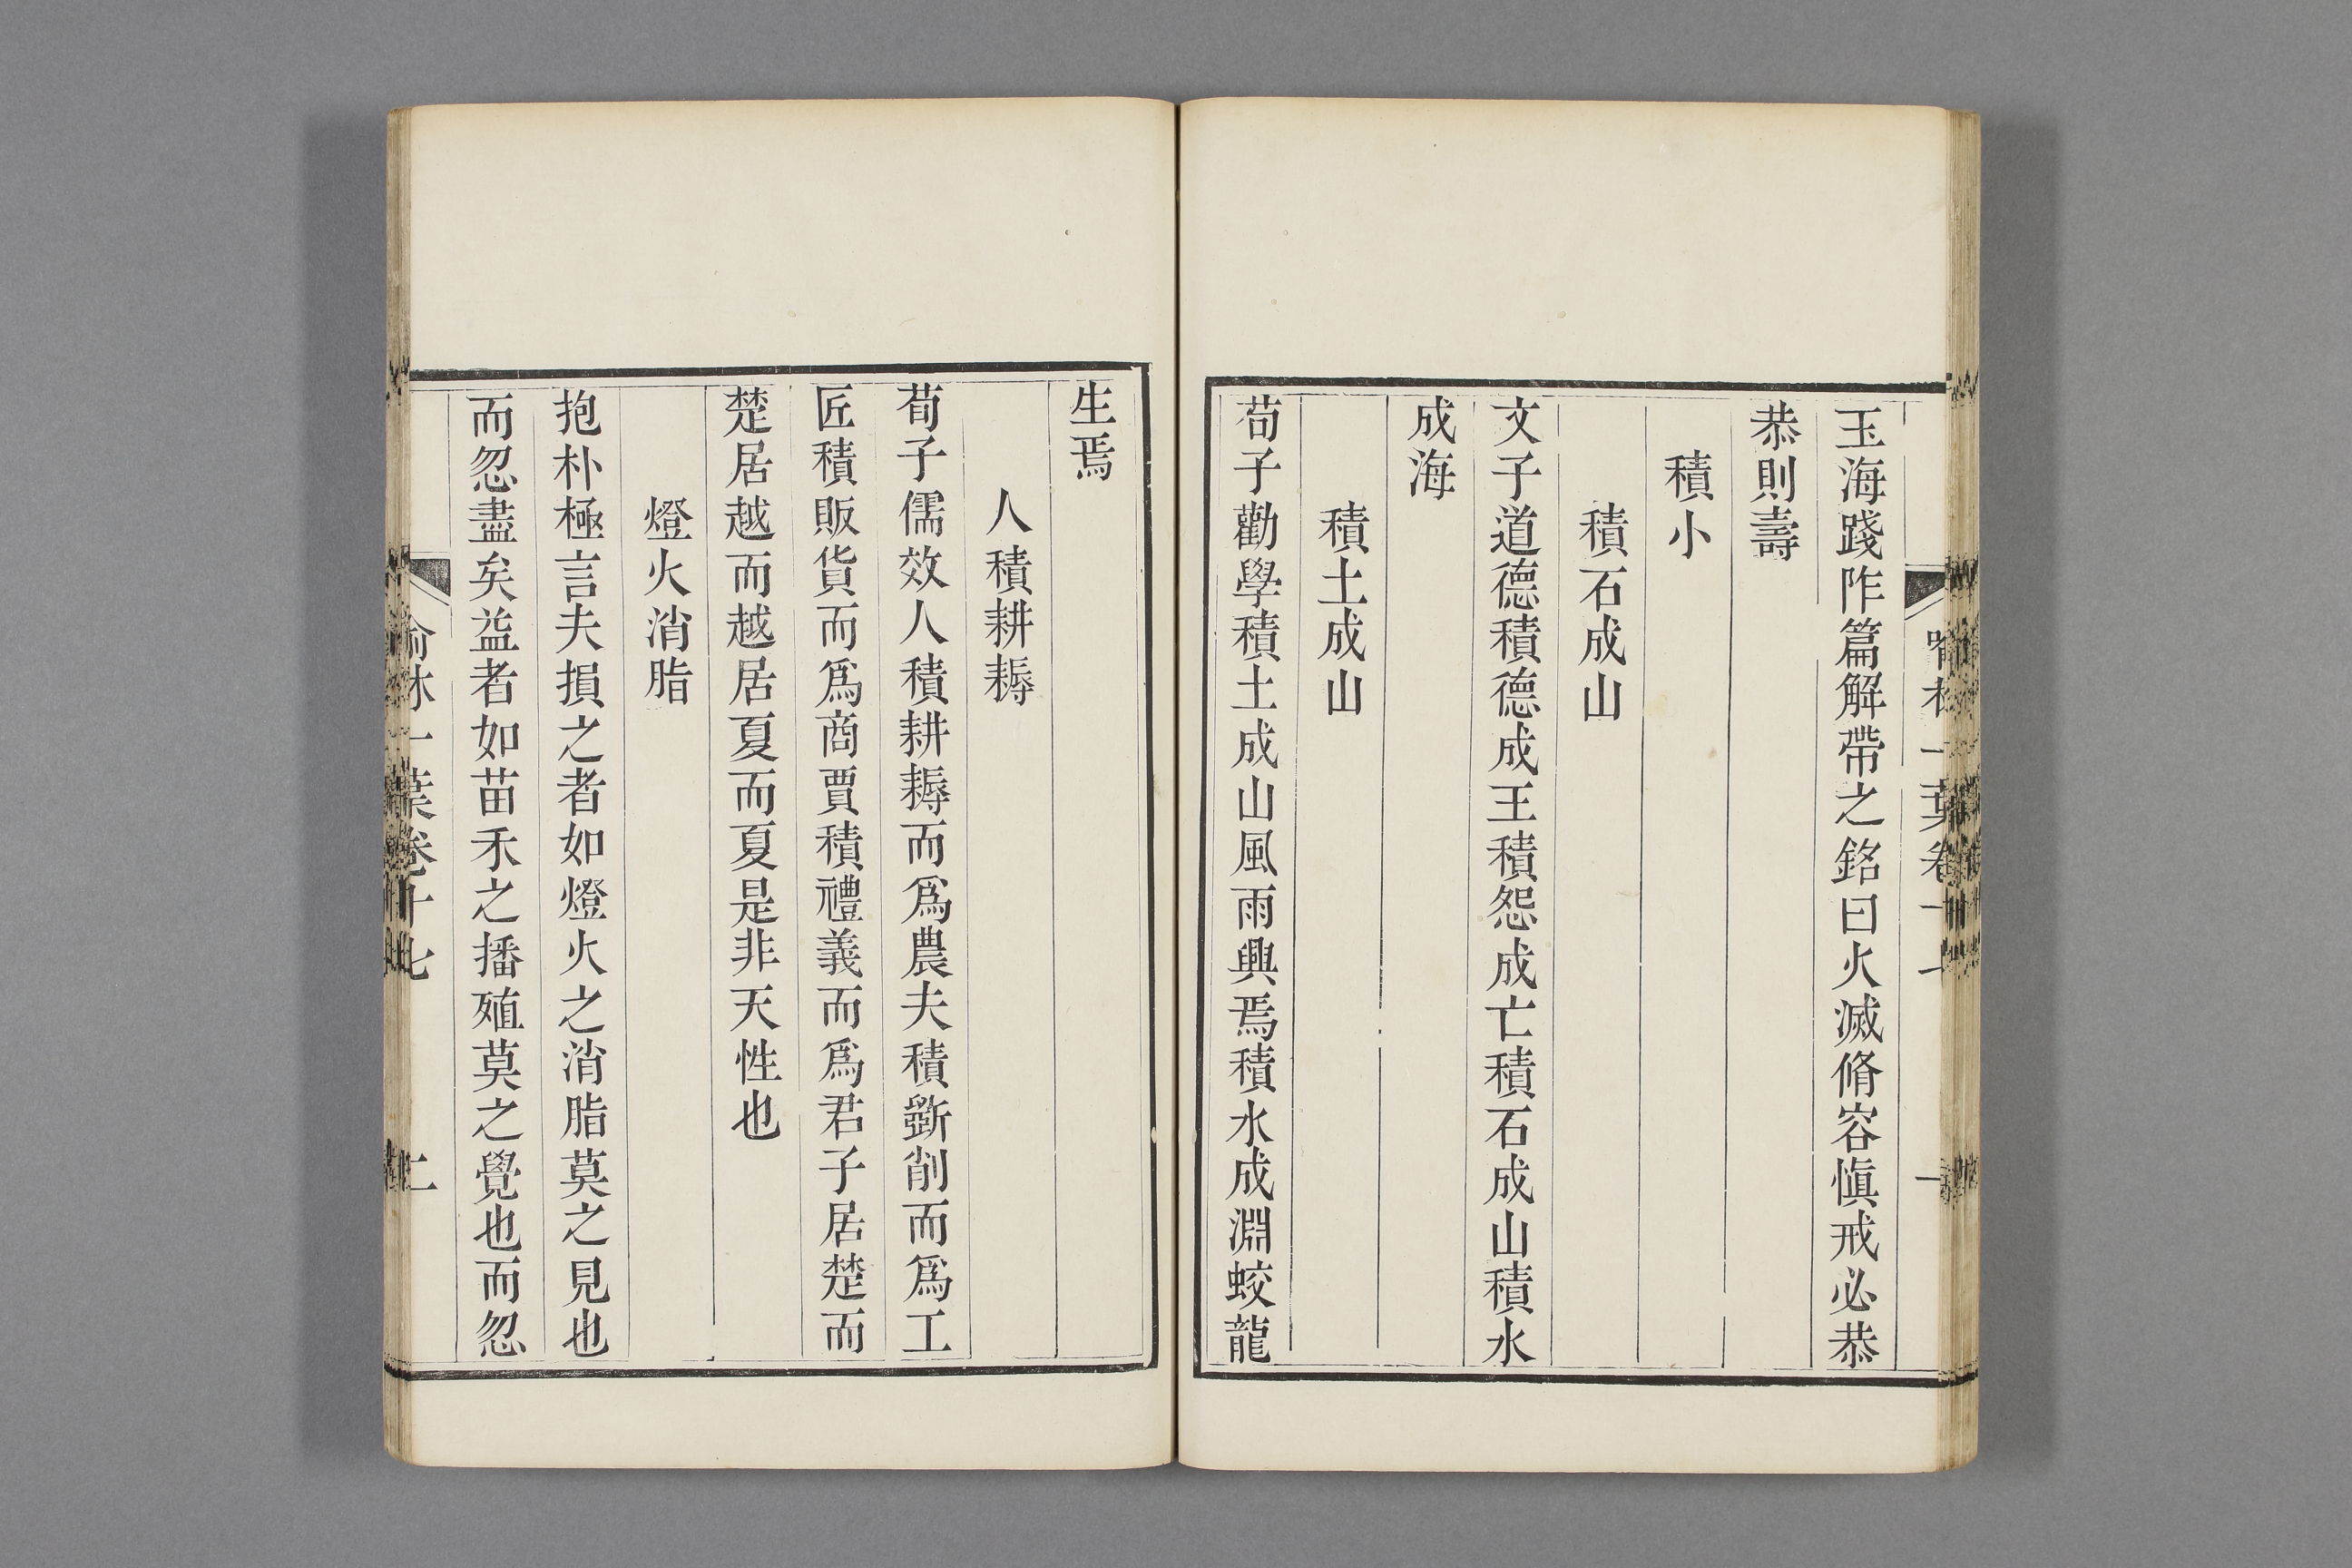 玉海踐阼篇解帶之銘曰火滅脩容愼戒必恭
恭則壽
積小
積石成山
文子道德積德成王積怨成亡積石成山積水
成海
積土成山
荀子勸學積土成山風雨興焉積水成淵蛟龍
生焉
人積耕耨
荀子儒效人積耕耨而爲農夫積斲削而爲工
匠積販貨而爲商賈積禮義而爲君子居楚而
楚居越而越居夏而夏是非天性也
燈火消脂
抱朴極言夫損之者如燈火之消脂莫之見也
而忽盡矣益者如苗禾之播殖莫之覺也而忽
喻林一葉卷十七
二